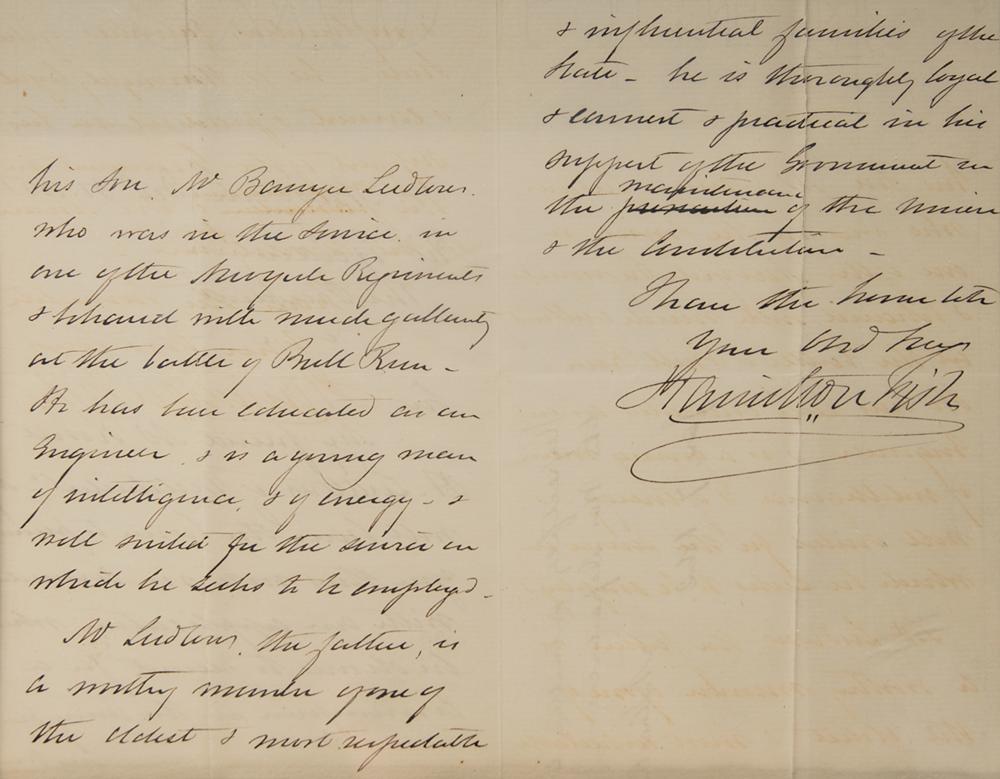 his son Mr Banyer Ludlow.
who was in the service in
one of the New York Regiments
& behaved with much gallantry
at the battle of Bull Run -
He has been educated as an
Engineer, & is a young man
of intelligence, & of energy - &
well suited for the service in
which he seeks to be employed -
Mr Ludlow, the father, is
a worthy member of one of
the oldest & most respectable
& influential families of the
State - he is thoroughly loyal
& earnest & practical in his
support of the Government in
maintenance
the of the Union
& the Constitution -
I have the honor to be
Your Obd Serv
Hamilton Fish